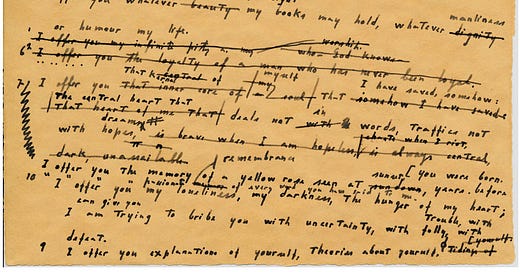 you whatever beauty my books may hold, whatever manliness dignity
or humour my life.
I offer you my infinite pity worship. who God knows
6 I offer you the loyalty of a man who has never been loyal.
That kernel of myself I have saved, somehow:
7 I offer you that inner core of my soul that somehow I have saved
The central heart that
That heart that deals not in with words, traffics not
dreams
with hopes, is brave when I am hopeless, is always central,
dark, unassailable
remembrance sunset you were born.
I offer you the memory of a yellow rose seen at sundown, years before
10 I offer you my loneliness, my darkness, the hunger of my heart;
can give you trouble, with
I am trying to bribe you with uncertainty, with folly, with
defeat. yourself
9 I offer you explanations of yourself, theories about yourself, tidings of